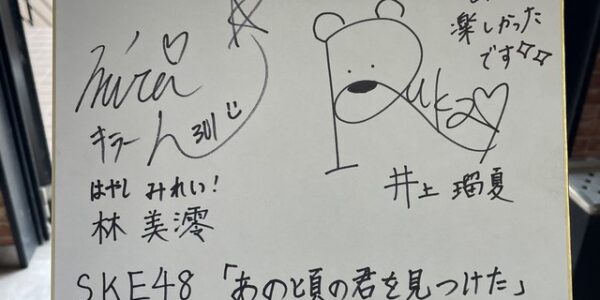 楽しかった
です☆☆
Ruka♡
キラーん
はやし みれい!
林 美澪
井上 瑠夏
SKE48 「あの頃の君を見つけた」